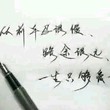 从前车马很慢
路途遥远
一生只够爱